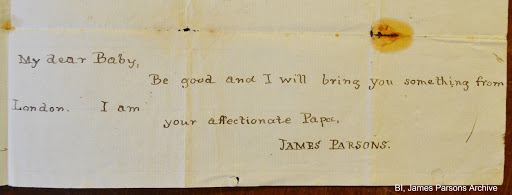 My dear Baby,
Be good and I will bring you something from
London. I am
your affectionate Papa,
JAMES PARSONS.
BI, James Parsons Archive